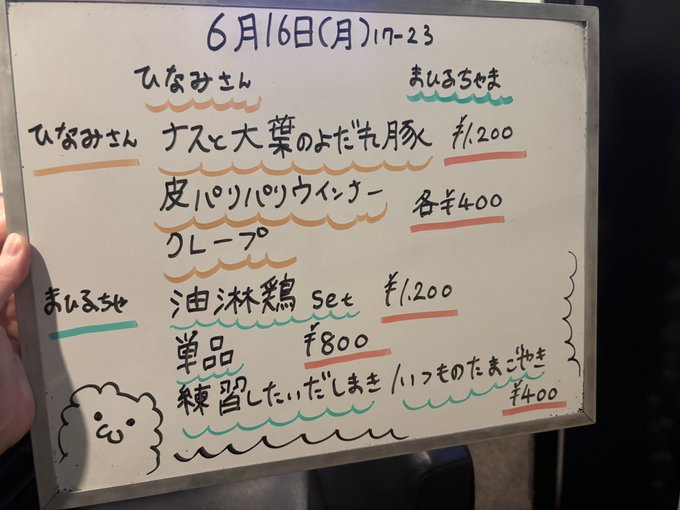 6月16日(月)17-23
ひなみさん まひるちゃま
ひなみさん ナスと大葉のよだれ豚 ¥1,200
皮パリパリウインナー 各¥400
クレープ
まひるちゃ 油淋鶏 set ¥1,200
単品 ¥800
練習したいだしまき/いつものたまごやき
¥400